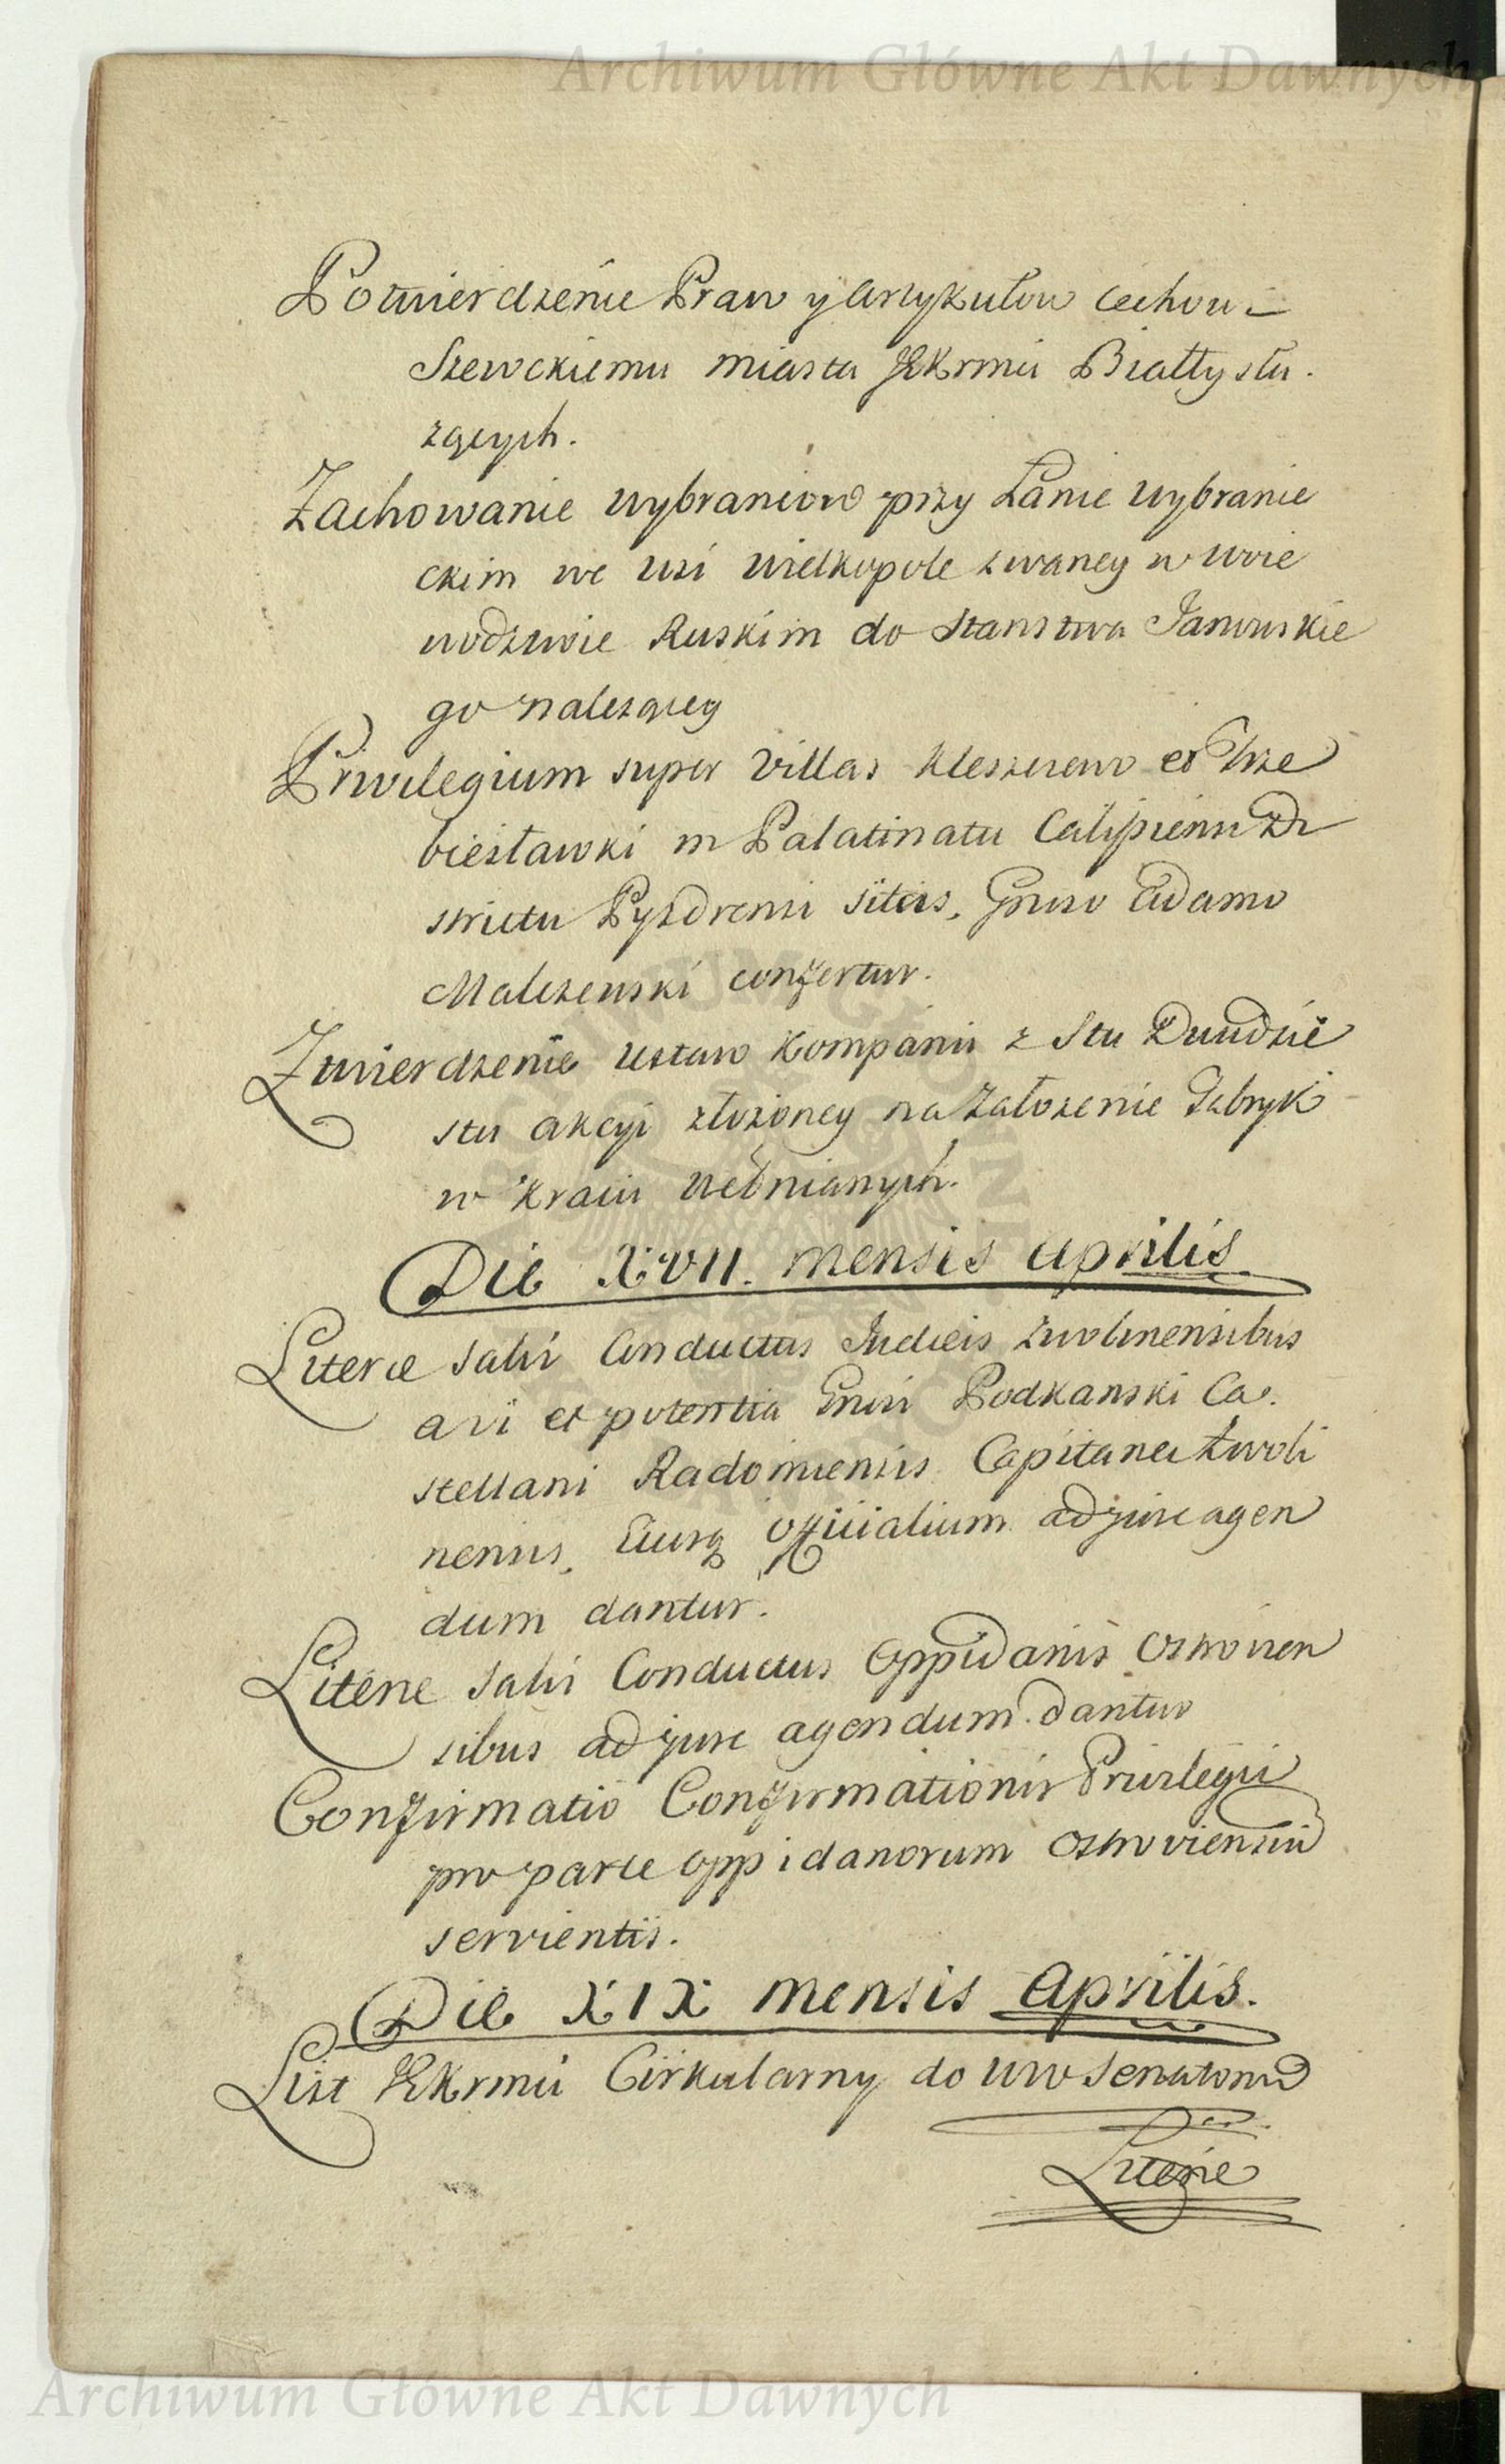 Archiwum Główne Akt Dawnych
Potwierdzenie Praw y Artykułow Cechowi
Szewckiemu miasta JKrmci Białły słu.
zących.
Zachowanie wybrancow przy Łanie wybranie
ckim we wsi Wielkopole zwaney w Woie
wodztwie Ruskim do Starstwa Janowskie
go nalezącey
Privilegium super Villas Kleszczewo et Trze
biesławki in Palatinatu Calisiensi Di
strictu Pyzdrensi sitas, Gnroso Adamo
Malczewski confertur.
Zwierdzenie ustaw Kompanii z Stu Dwudzie
stu akcyi złożoney na Założenie Fabryk
w Kraiu wełnianych.
Die XVII. mensis Aprilis
Literæ Salvi Conductus Iudæis Zwolinensibus
a vi et potentia Gnrsi Podkanski Ca.
stellani Radomiensis Capitanei Zwoli
nensis, Eiusq officialium ad jure agen
dum dantur.
Literæ Salvi Conductus Oppidanis Ostrovien
sibus ad jure agendum dantur
Confirmatio Confirmationis Privilegii
pro parte oppidanorum Ostroviensiu
servientis.
Die XIX mensis Aprilis.
List JKrmci Cirkularny do WW Senatorow
Literæ
Archiwum Główne Akt Dawnych